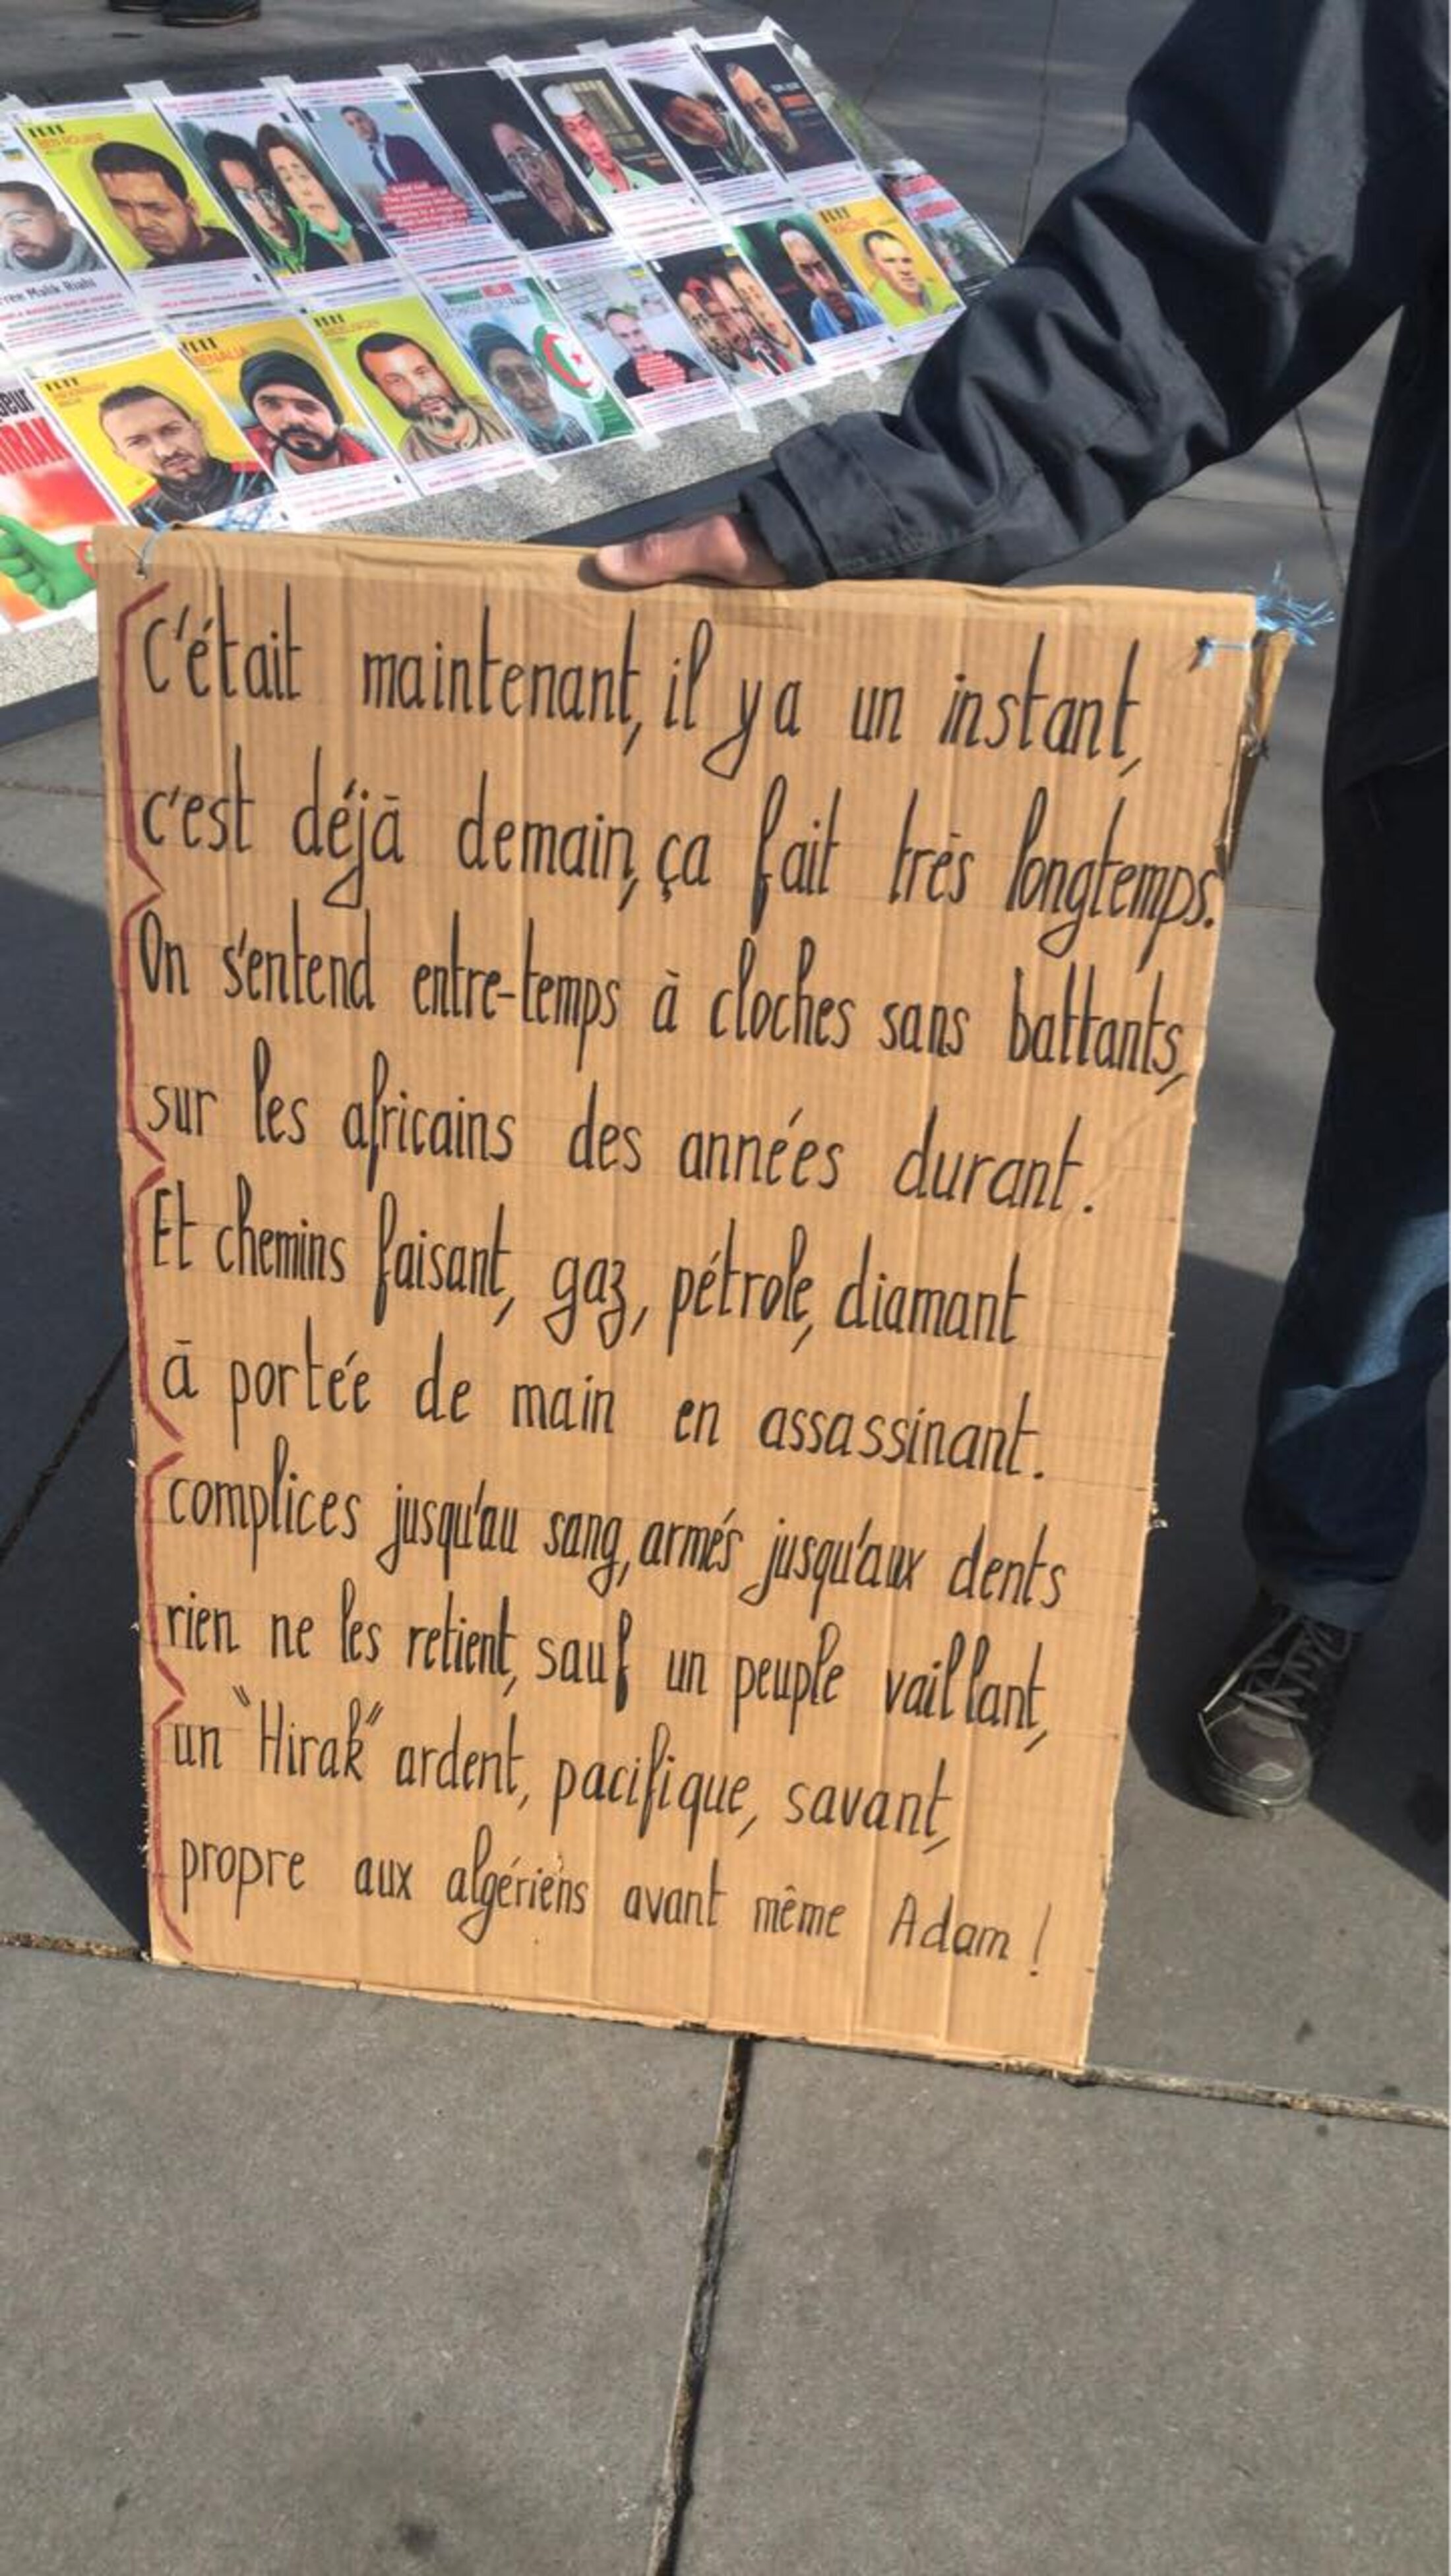 Free Malik Riahi
HIRAK
C'était maintenant, il y a un instant,
c'est déjà demain, ça fait très longtemps.
On s'entend entre-temps à cloches sans battants,
sur les africains des années durant.
Et chemins faisant, gaz, pétrole, diamant
à portée de main en assassinant.
complices jusqu'au sang, armés jusqu'aux dents
rien ne les retient, sauf un peuple vaillant,
un "Hirak" ardent, pacifique, savant,
propre aux algériens avant même Adam !